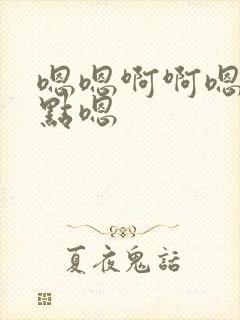 嗯嗯啊啊嗯
點嗯
夏夜鬼話